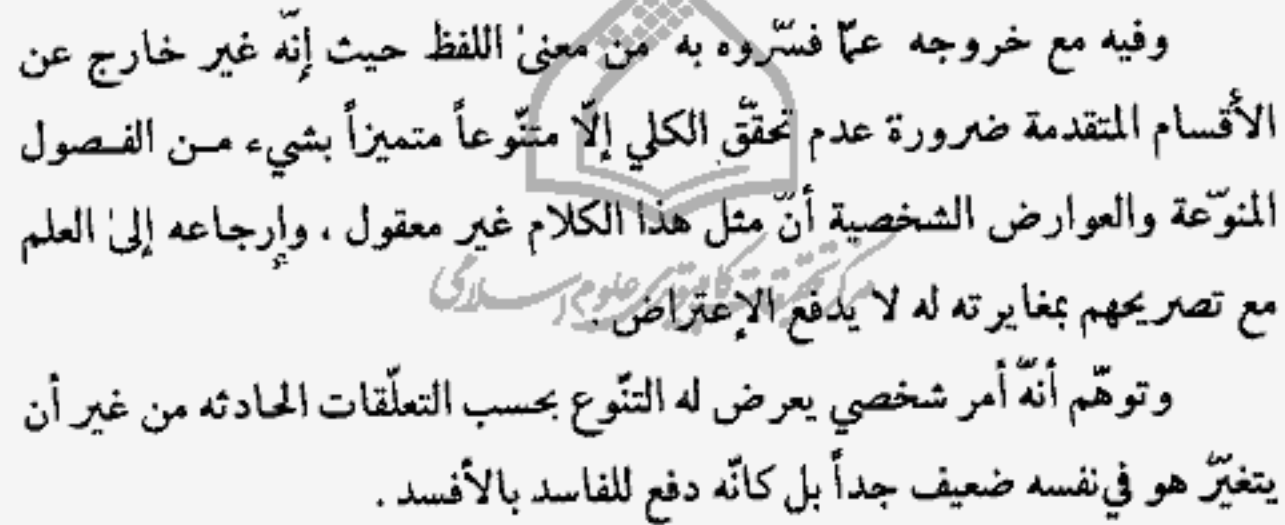 وفيه مع خروجه عمّا فسّروه به من معنىٰ اللفظ حيث إنّه غير خارج عن
الأقسام المتقدمة ضرورة عدم تحقّق الكلي إلّا متنّوعاً متميزاً بشيء من الفصول
المنوّعة والعوارض الشخصية أنّ مثل هذا الكلام غير معقول ، وإرجاعه إلىٰ العلم
مع تصريحهم بمغايرته له لا يدفع الإعتراض .
وتوهّم أنّه أمر شخصي يعرض له التنّوع بحسب التعلّقات الحادثه من غير أن
يتغيّر هو في نفسه ضعيف جداً بل كانّه دفع للفاسد بالأفسد .
مركز تحقيقات كامپيوتري علوم اسلامي